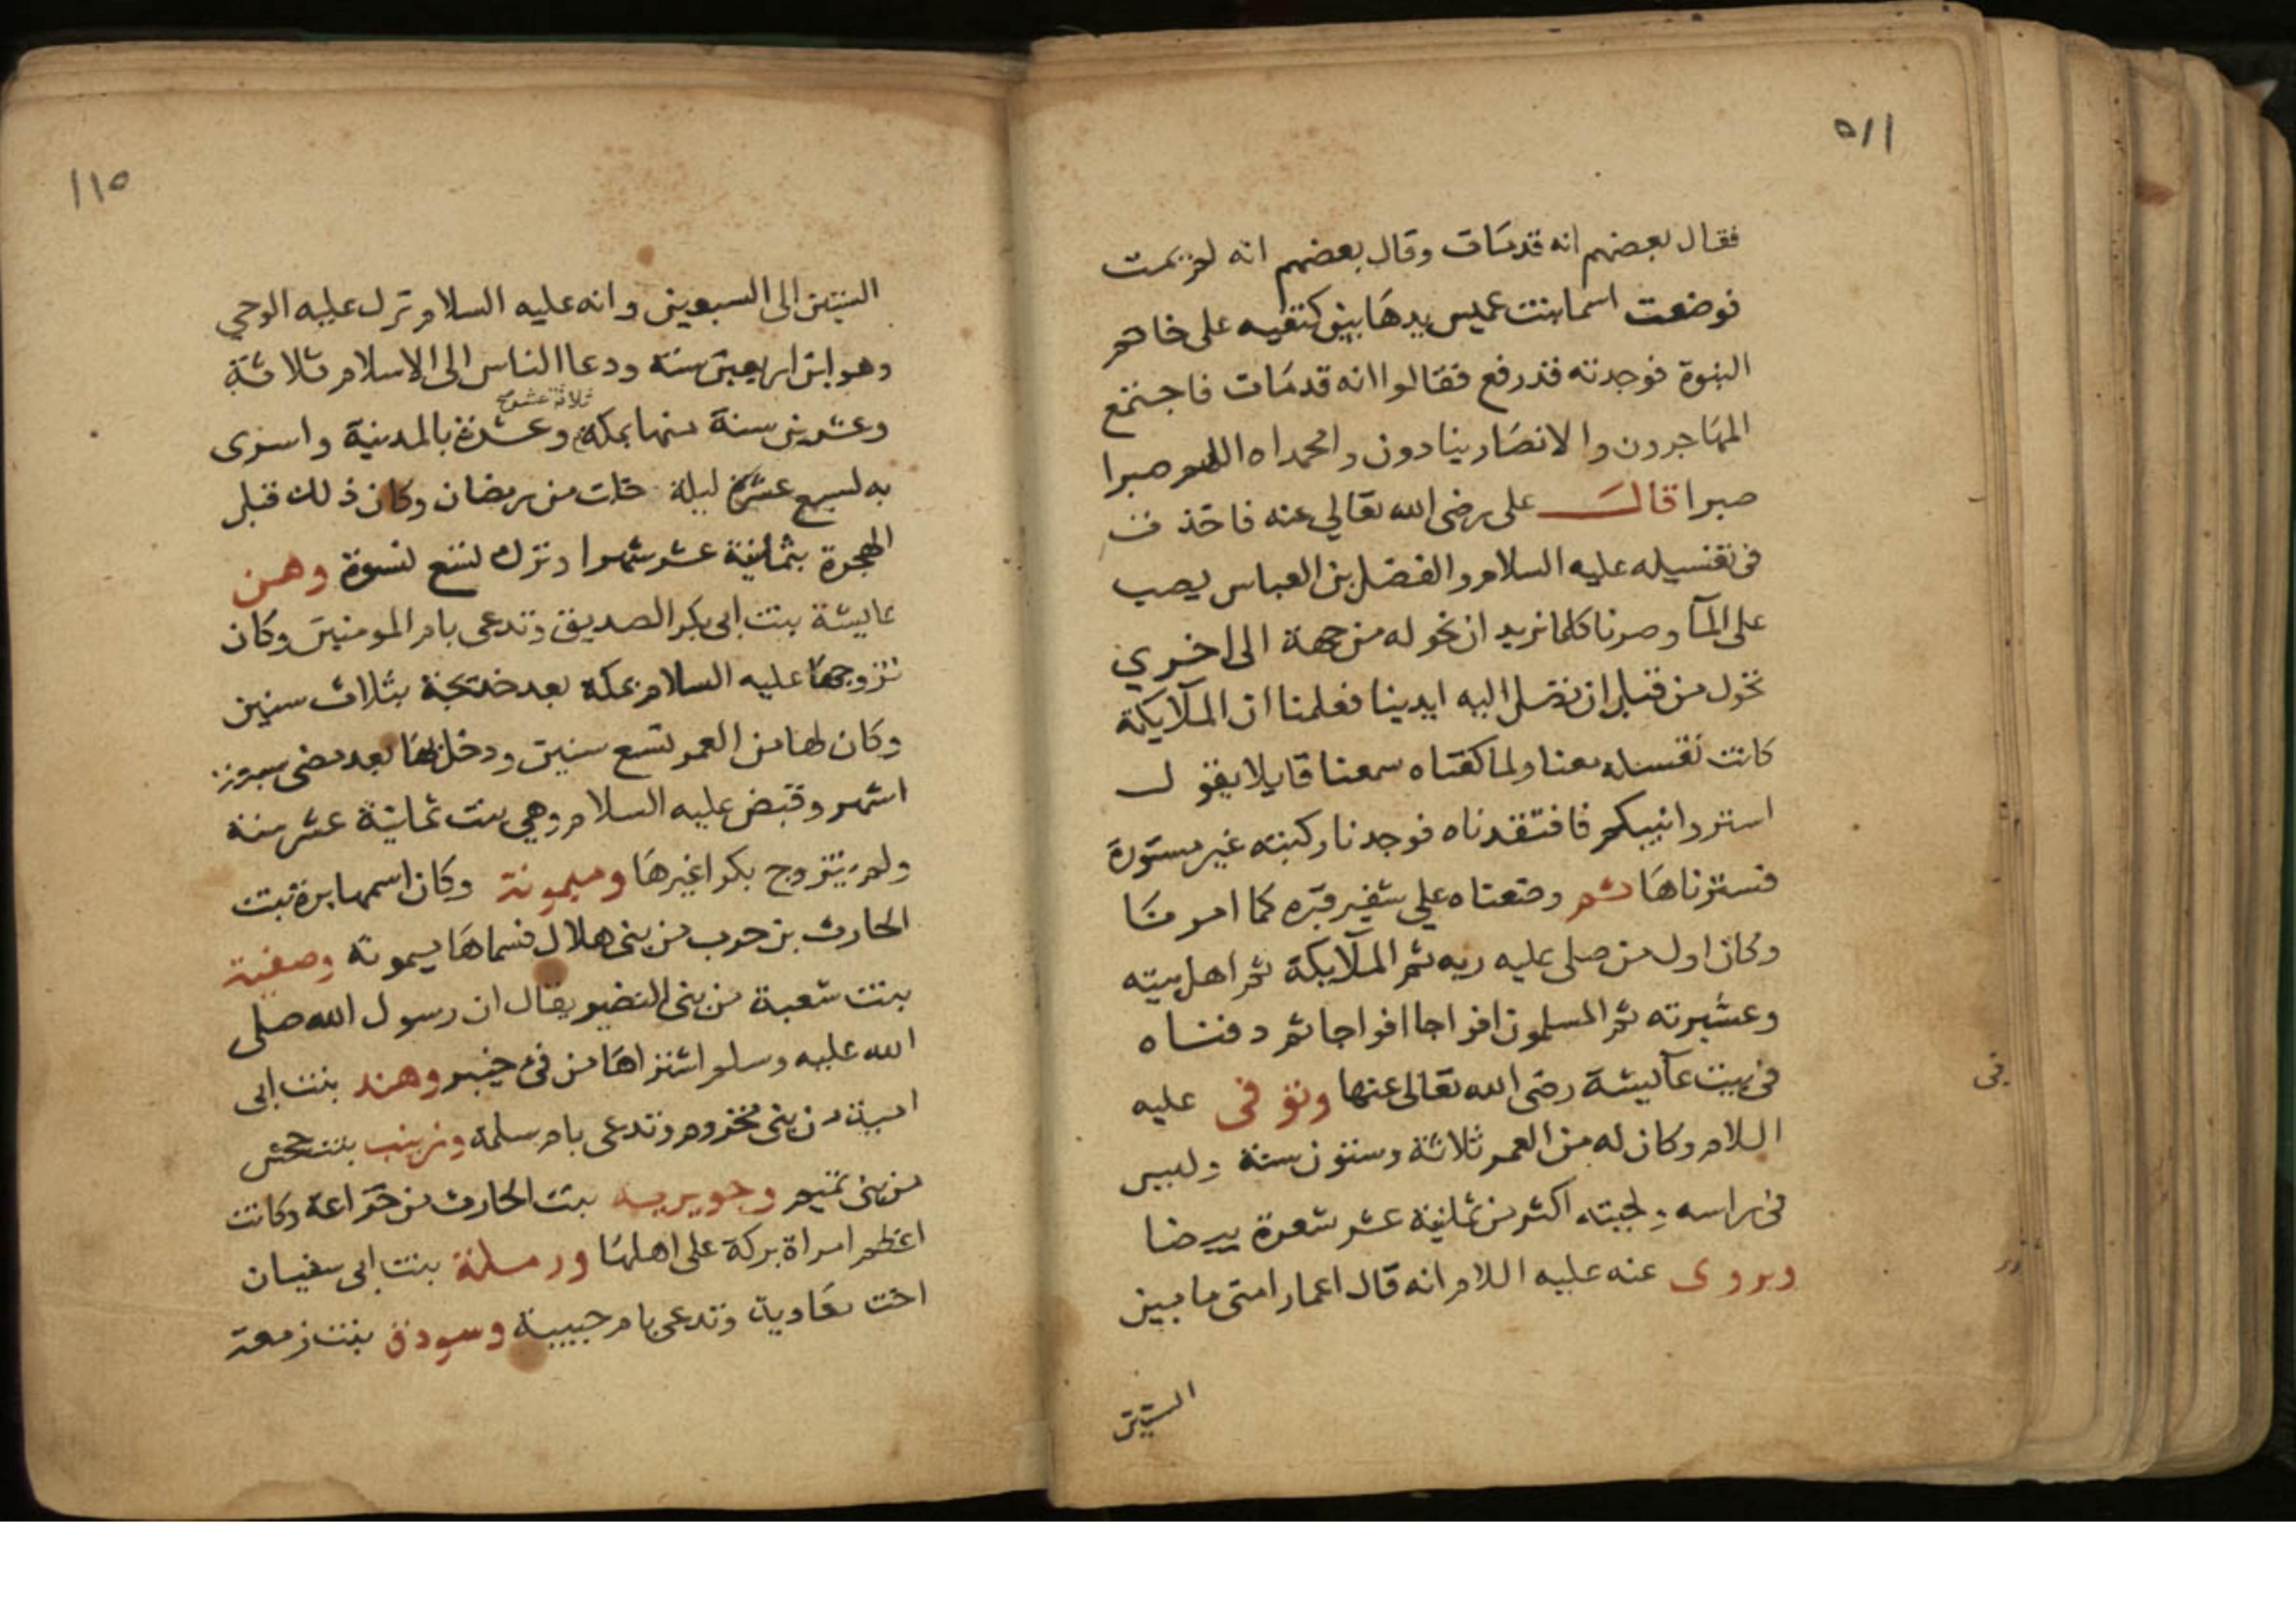 ٥١١
فقال بعضهم انه قد مات وقال بعضهم انه لم يمت
فوضعت اسما بنت عميس يدها بين كتفيه على خاتم
النبوة فوجدته قد رفع فقالوا انه قد مات فاجتمع
المهاجرون والانصار ينادون وامحمداه اللهم صبرا
صبرا قال على رضى الله تعالي عنه فاخذت
فى تغسيله عليه السلام والفضل بن العباس يصب
على المآ وصرنا كلما نريد ان نحوله من جهة الى اخري
تحول من قبل ان نصل اليه ايدينا فعلمنا ان الملآيكة
كانت تغسله معنا ولما كفناه سمعنا قايلا يقول
استروا نبيكم فافتقدناه فوجدنا ركبته غير مستورة
فسترناها ثم وضعناه علي شفير قبره كما امرنا
وكان اول من صلى عليه ربه ثم الملآيكة ثم اهل بيته
وعشيرته ثم المسلمون افواجا افواجا ثم دفناه
فى بيت عآيشة رضى الله تعالى عنها وتوفى عليه
اللام وكان له من العمر ثلاثة وستون سنة وليس
فى راسه ولحيته اكثر من ثمانية عشر شعرة بيضا
ويروى عنه عليه اللام انه قال اعمار امتى ما بين
الستين
فى
١١٥
الستين الى السبعين وانه عليه السلام نزل عليه الوحي
وهو ابن اربعين سنة ودعا الناس الى الاسلام ثلاثة
ثلاثة عشر صح
وعشرين سنة منها بمكة وعشرة بالمدينة واسرى
به لسبع عشرة ليلة خلت من رمضان وكان ذلك قبل
الهجرة بثمانية عشر شهرا وترك تسع نسوة وهن
عايشة بنت ابى بكر الصديق وتدعى بام المومنين وكان
تزوجها عليه السلام بمكة بعد خديجة بثلاث سنين
وكان لها من العمر تسع سنين ودخل بها بعد مضى
اشهر وقبض عليه السلام وهي بنت ثمانية عشر سنة
ولم يتزوج بكرا غيرها وميمونة وكان اسمها برة بنت
الحارث بن حرب من بنى هلال فسماها ميمونة وصفية
بنت شعبة من بنى النضير يقال ان رسول الله صلى
الله عليه وسلم اشتراها من فئ خيبر وهند بنت ابى
امية من بنى مخزوم وتدعى بام سلمة وزينب بنت جحش
من بنى تميم وجويريه بنت الحارث من خزاعة وكانت
اعظم امراة بركة على اهلها ورملة بنت ابى سفيان
اخت معاوية وتدعى بام حبيبة وسودة بنت زمعة